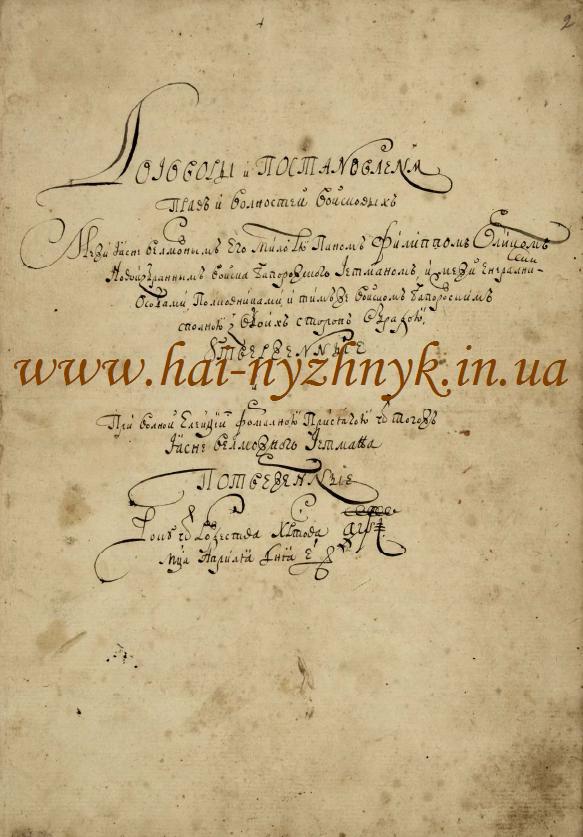 2
Договоры и Постановленѧ
Правъ и волностей войсковыхъ
Межи Ясне велможнымъ Его Милостю Паномъ Филиппомъ Орликомъ
Новоизбраннымъ войска Запорожского Гетманомъ, и межи Енералними
Особами, Полковниками, и тимъже войскомъ Запорозскимъ
сполною з обоихъ сторонъ обрадою,
Утверженные
www.hai-nyzhnyk.in.ua
При волной Елекціи формалною Присягою ѿ тогожъ
Ясне велможного Гетмана
Потверженные
Року ѿ Рождества Христова ҂аѱі
Мца Априлѧ Днѧ е